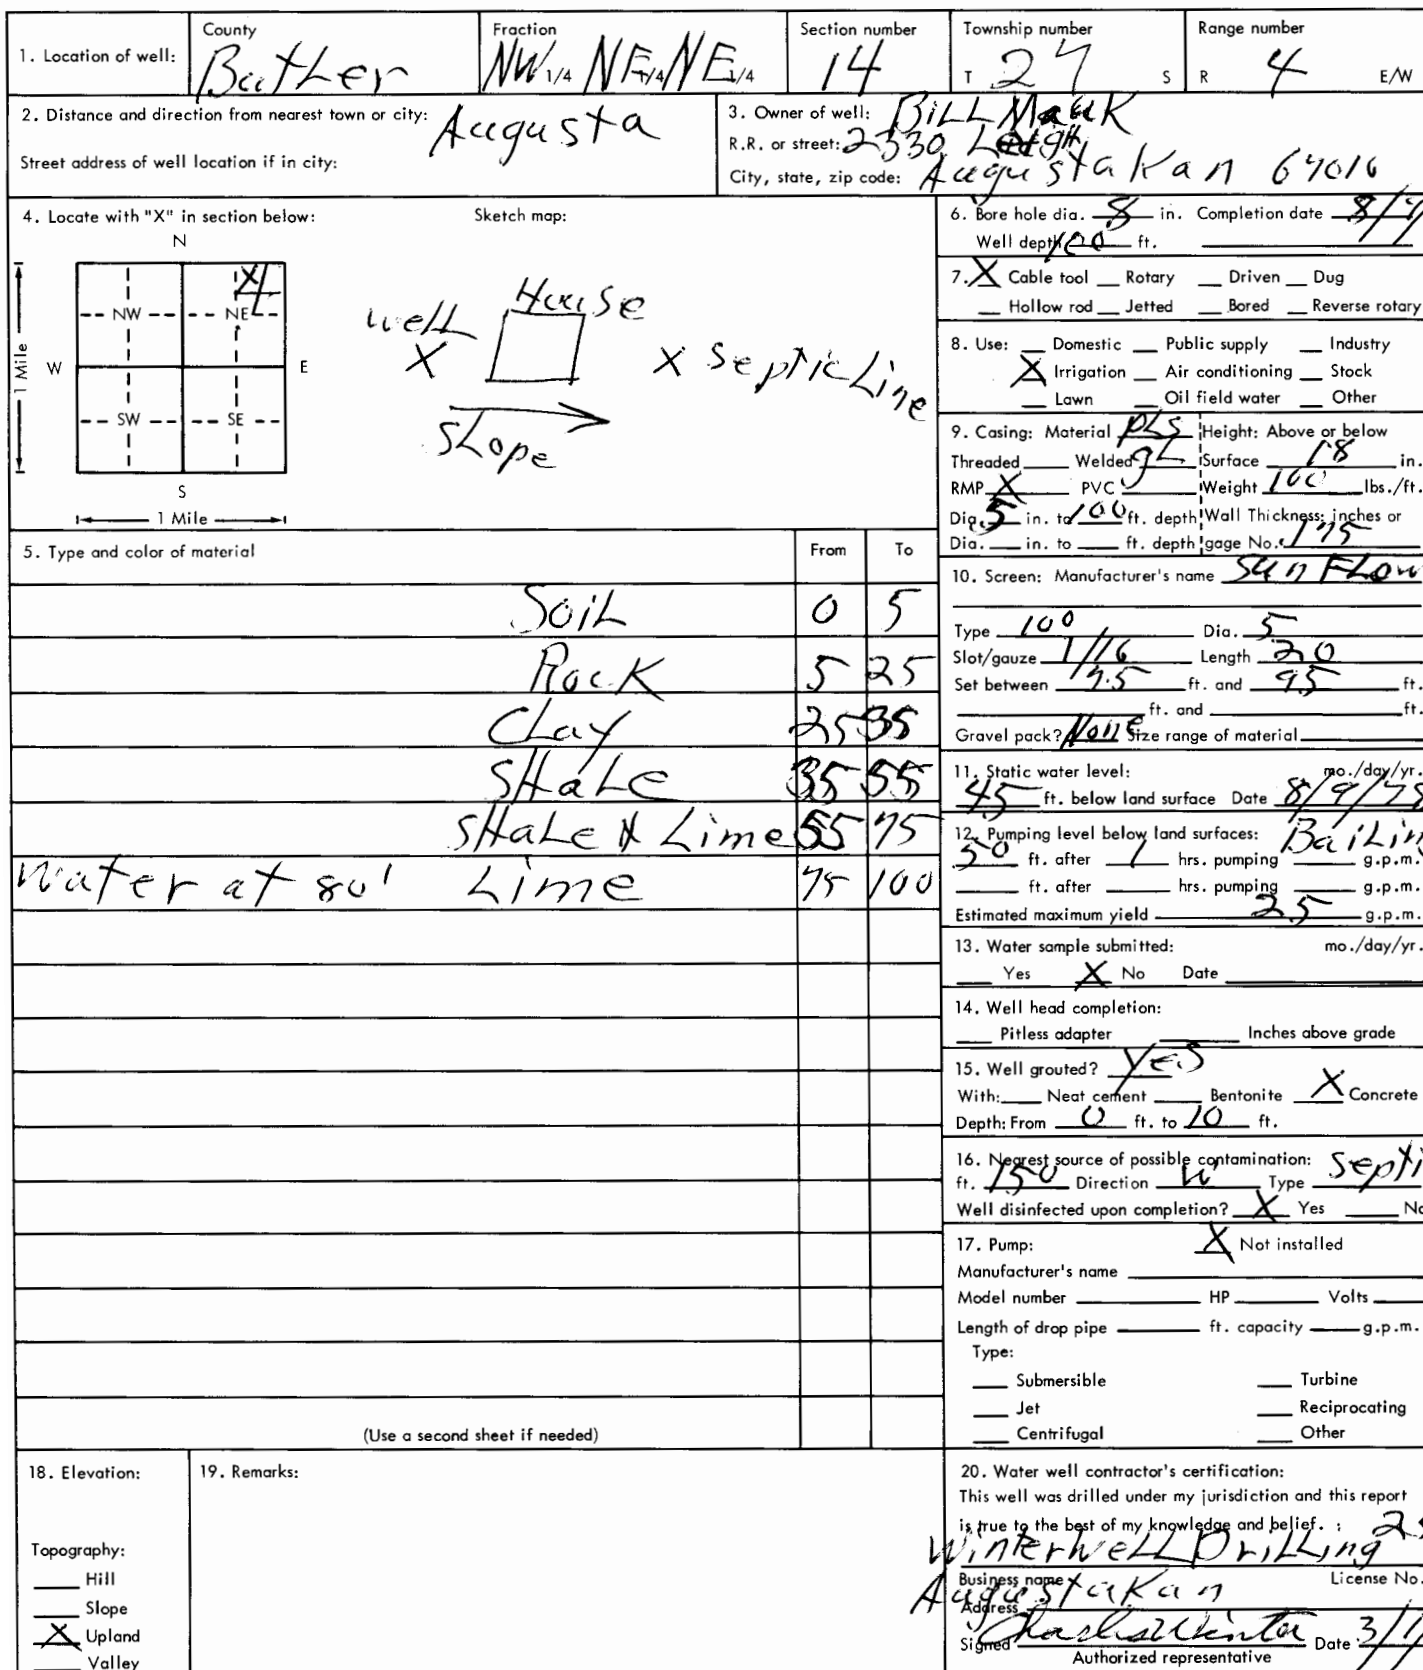 1. Location of well: County Butler Fraction NW 1/4 NE 1/4 NE 1/4 Section number 14 Township number T 27 S Range number R 4 E/W
2. Distance and direction from nearest town or city: Augusta
Street address of well location if in city:
3. Owner of well: BILL Mauk
R.R. or street: 2330
City, state, zip code: Augusta Kan 67010
4. Locate with "X" in section below:
N
NW NE
W E
SW SE
S
1 Mile
1 Mile
X
Sketch map:
House
well
X
X Septic Line
SLope
5. Type and color of material From To
Soil 0 5
Rock 5 25
CLay 25 35
SHaLe 35 55
SHaLe & Lime 55 75
Water at 80' Lime 75 100
(Use a second sheet if needed)
6. Bore hole dia. 8 in. Completion date 8/9/
Well depth 100 ft.
7. X Cable tool Rotary Driven Dug
Hollow rod Jetted Bored Reverse rotary
8. Use: Domestic Public supply Industry
X Irrigation Air conditioning Stock
Lawn Oil field water Other
9. Casing: Material PLS Height: Above or below
Threaded Welded gL Surface 18 in.
RMP X PVC Weight 100 lbs./ft.
Dia. 5 in. to 100 ft. depth Wall Thickness: inches or
Dia. in. to ft. depth gage No. .175
10. Screen: Manufacturer's name Sun FLow
Type 100 Dia. 5
Slot/gauze 1/16 Length 20
Set between 75 ft. and 95 ft.
ft. and ft.
Gravel pack? None Size range of material
11. Static water level: mo./day/yr.
45 ft. below land surface Date 8/9/78
12. Pumping level below land surfaces: BaiLing
50 ft. after 1 hrs. pumping g.p.m.
ft. after hrs. pumping g.p.m.
Estimated maximum yield 25 g.p.m.
13. Water sample submitted: mo./day/yr.
Yes X No Date
14. Well head completion:
Pitless adapter Inches above grade
15. Well grouted? Yes
With: Neat cement Bentonite X Concrete
Depth: From 0 ft. to 10 ft.
16. Nearest source of possible contamination: Septi
ft. 150 Direction W Type
Well disinfected upon completion? X Yes No
17. Pump: X Not installed
Manufacturer's name
Model number HP Volts
Length of drop pipe ft. capacity g.p.m.
Type:
Submersible Turbine
Jet Reciprocating
Centrifugal Other
18. Elevation:
Topography:
Hill
Slope
X Upland
Valley
19. Remarks:
20. Water well contractor's certification:
This well was drilled under my jurisdiction and this report
is true to the best of my knowledge and belief.
Winter WeLL DriLLing
Business name License No.
Augusta Kan
Address
Signed Charles Winter Date 3/1
Authorized representative